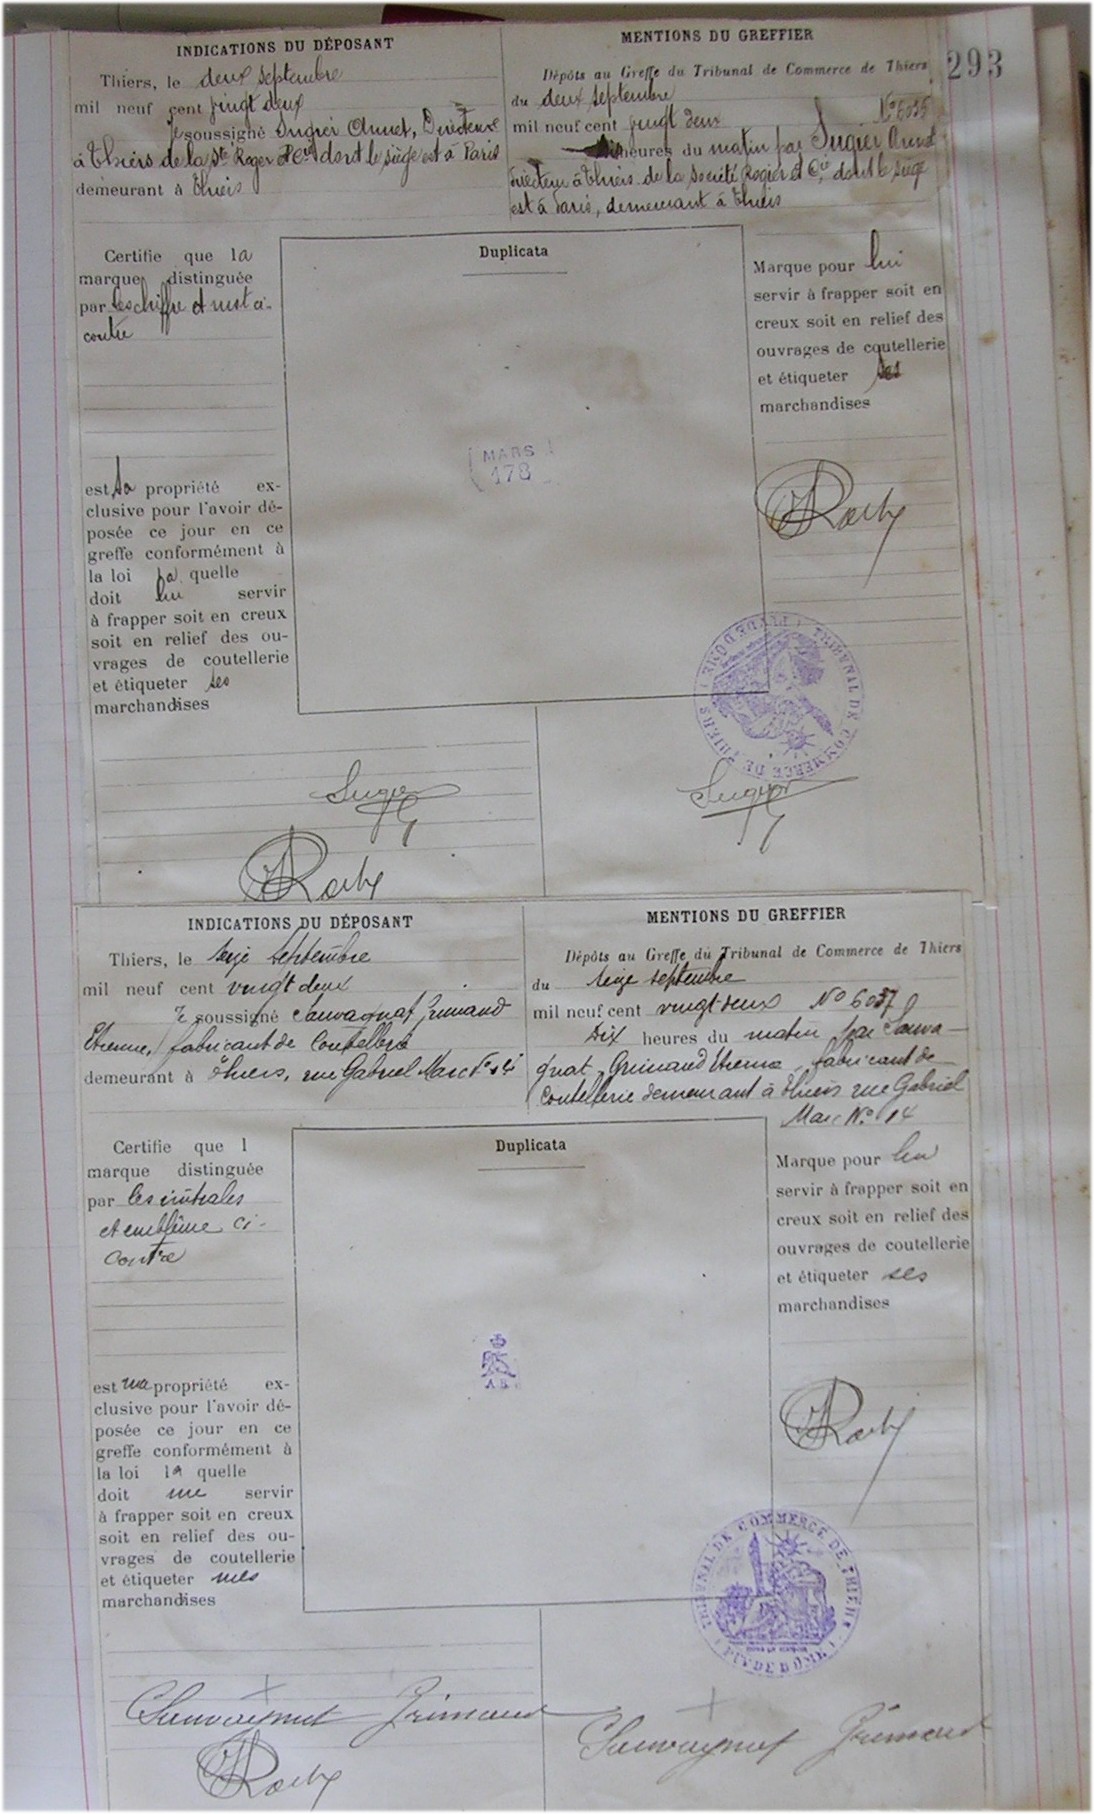 293
INDICATIONS DU DÉPOSANT
Thiers, le deux septembre
mil neuf cent vingt deux
Je soussigné Sugier Annet, Directeur
à Thiers de la Sté Roger et Cie dont le siège est à Paris
demeurant à Thiers
MENTIONS DU GREFFIER
Dépôts au Greffe du Tribunal de Commerce de Thiers
du deux septembre
mil neuf cent vingt deux No 6035
heures du matin par Sugier Annet
Directeur à Thiers de la Société Rogier et Cie, dont le siège
est à Paris, demeurant à Thiers
Certifie que la
marque distinguée
par les chiffre et mot ci-
contre
est sa propriété ex-
clusive pour l'avoir dé-
posée ce jour en ce
greffe conformément à
la loi la quelle
doit lui servir
à frapper soit en creux
soit en relief des ou-
vrages de coutellerie
et étiqueter ses
marchandises
Duplicata
MARS
178
Marque pour lui
servir à frapper soit en
creux soit en relief des
ouvrages de coutellerie
et étiqueter ses
marchandises
TRIBUNAL DE COMMERCE DE THIERS
(PUY DE DOME)
Sugier
Sugier
INDICATIONS DU DÉPOSANT
Thiers, le seize septembre
mil neuf cent vingt deux
soussigné Sauvagnat Grimaud
Etienne, fabricant de Coutellerie
demeurant à Thiers, rue Gabriel Marc No 14
MENTIONS DU GREFFIER
Dépôts au Greffe du Tribunal de Commerce de Thiers
du seize septembre
mil neuf cent vingt deux No 6037
Dix heures du matin par Sauva-
gnat Grimaud Etienne, fabricant de
Coutellerie demeurant à Thiers rue Gabriel
Marc No 14
Certifie que l
marque distinguée
par les initiales
et emblème ci-
contre
est ma propriété ex-
clusive pour l'avoir dé-
posée ce jour en ce
greffe conformément à
la loi la quelle
doit me servir
à frapper soit en creux
soit en relief des ou-
vrages de coutellerie
et étiqueter mes
marchandises
Duplicata
A B
Marque pour lui
servir à frapper soit en
creux soit en relief des
ouvrages de coutellerie
et étiqueter ses
marchandises
TRIBUNAL DE COMMERCE DE THIERS
(PUY DE DÔME)
Sauvagnat Grimaud
Sauvagnat Grimaud